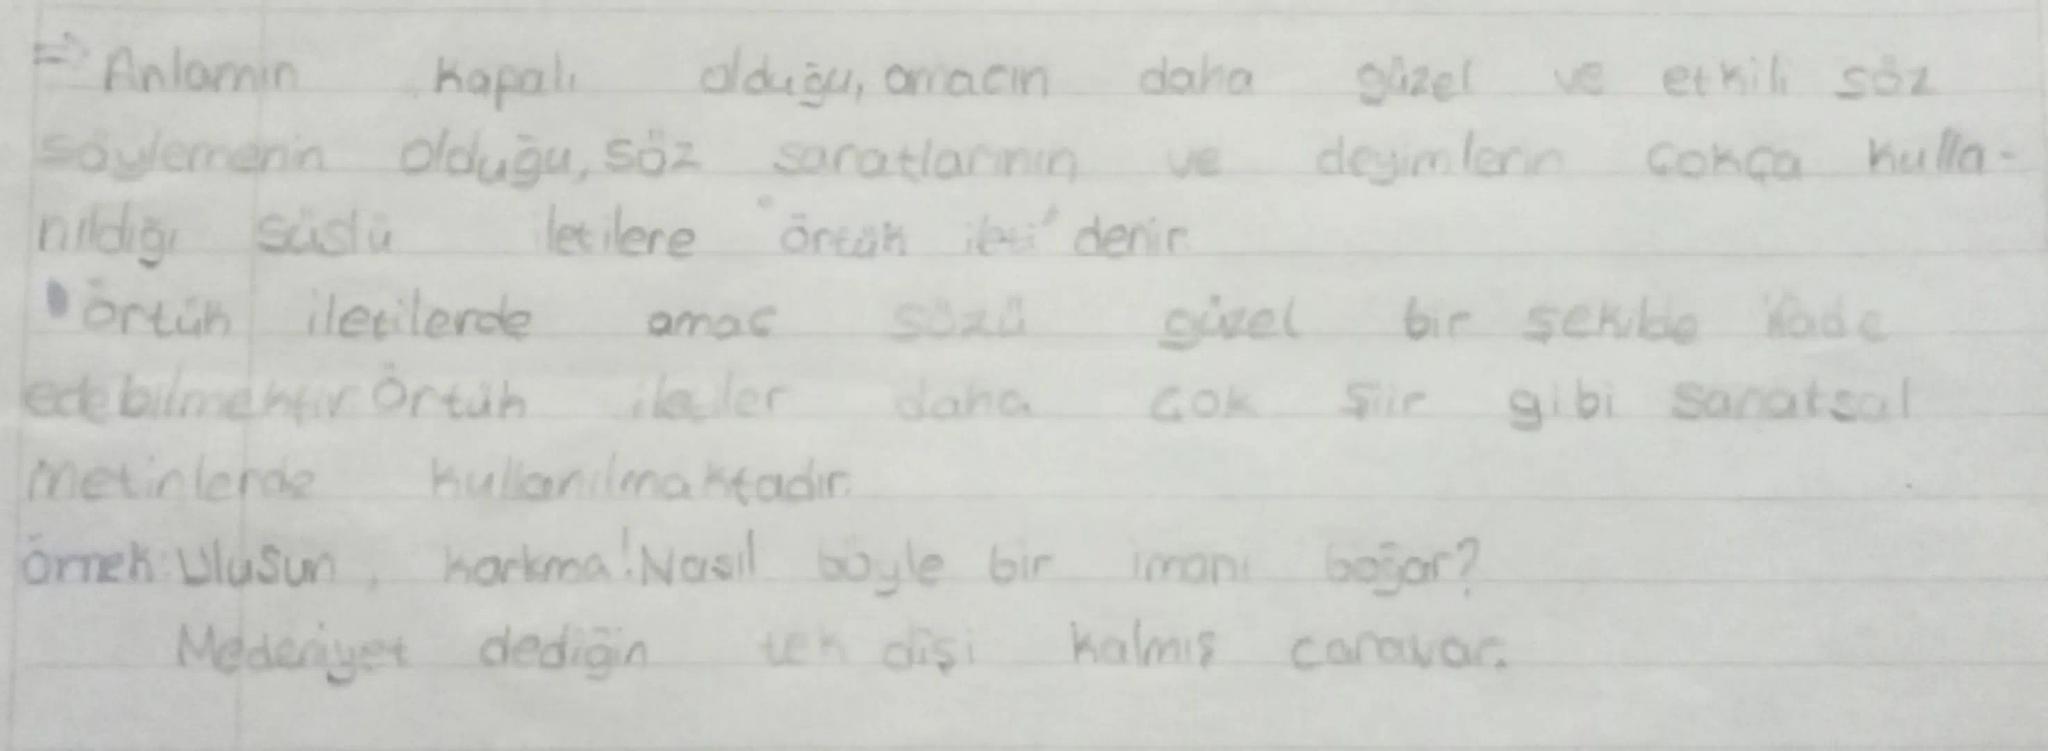 ⇒ Anlamın kapalı olduğu, amacın daha güzel ve etkili söz
söylemenin olduğu, söz sanatlarının ve deyimlerin çokça kulla-
nıldığı süslü letilere "örtük ileti" denir.
• Örtük iletilerde amaç sözü güzel bir şekilde ifade
edebilmektir Örtük iletiler daha çok şiir gibi sanatsal
metinlerde kullanılmaktadır.
Örnek: Ulusun, korkma! Nasıl böyle bir imanı boğar?
Medeniyet dediğin tek dişi kalmış canavar.